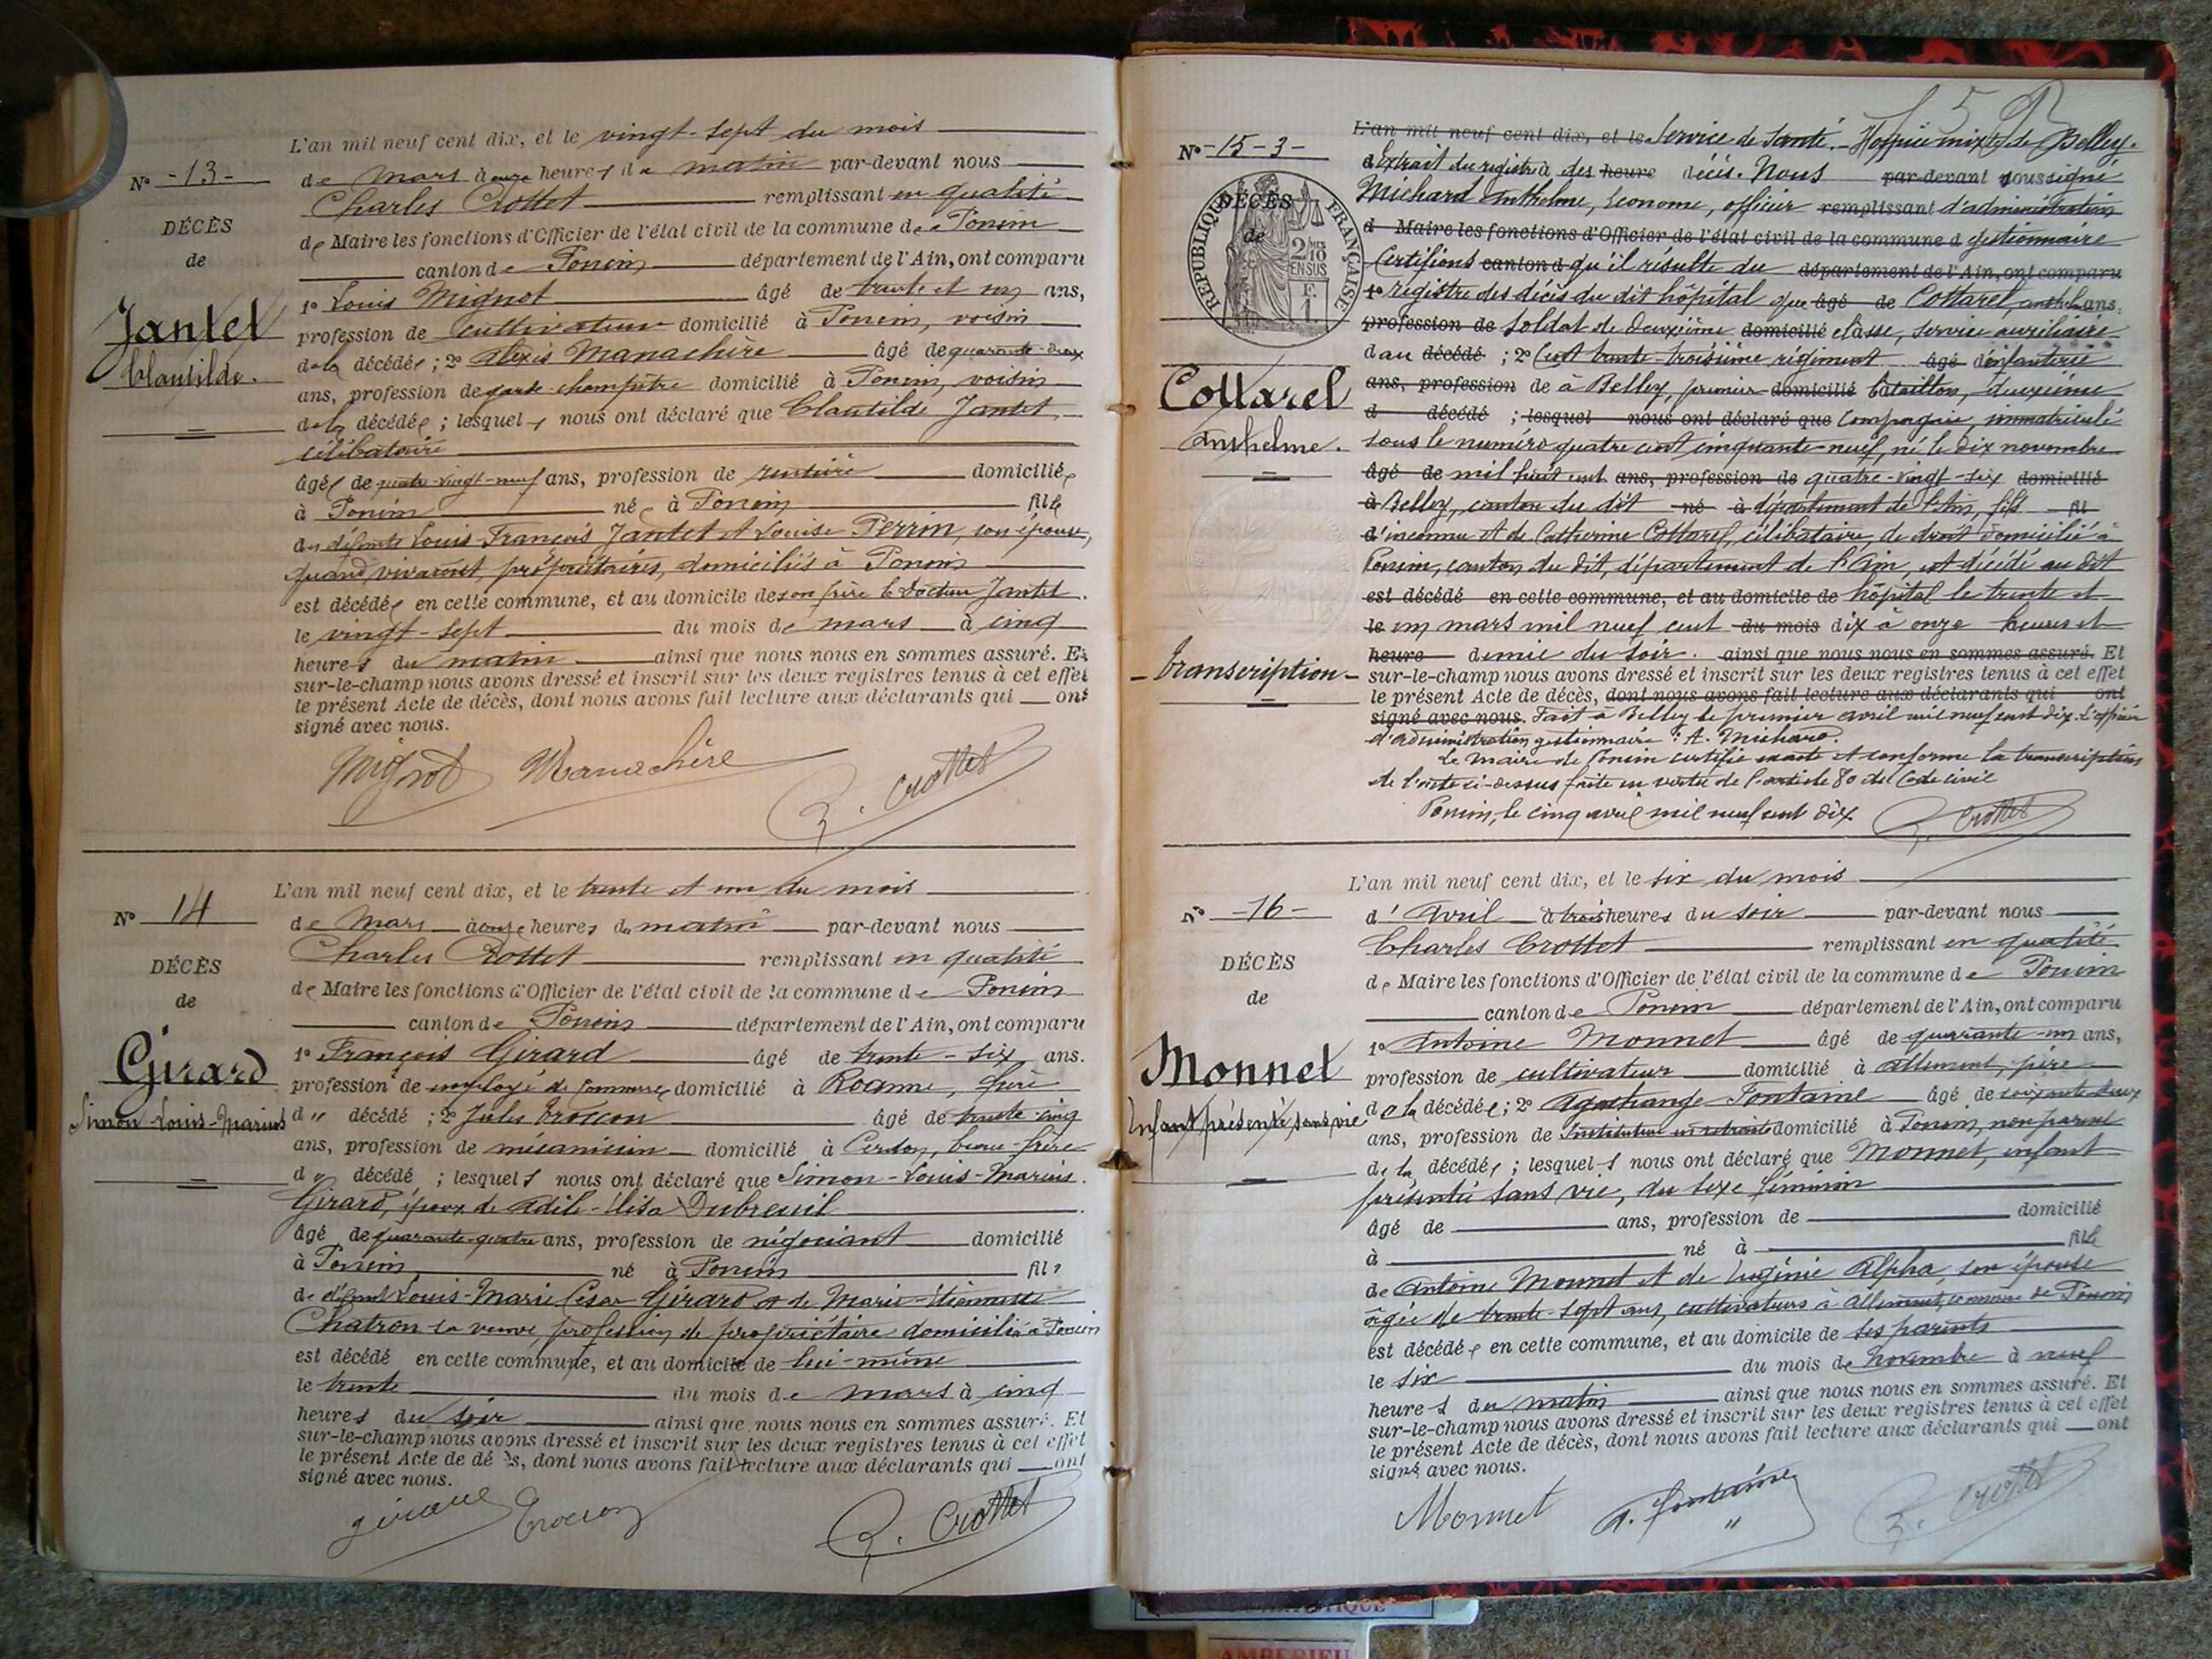 N° -13-
DÉCÈS
de
Jantet
Clautilde.
L'an mil neuf cent dix, et le vingt-sept du mois
de Mars à onze heures du matin par-devant nous
Charles Crottet remplissant en qualité
de Maire les fonctions d'Officier de l'état civil de la commune de Poncin
canton de Poncin département de l'Ain, ont comparu
1° Louis Mignot âgé de trente et un ans,
profession de cultivateur domicilié à Poncin, voisin
de la décédée ; 2° Alexis Manachère âgé de quarante-deux
ans, profession de garde-champêtre domicilié à Poncin, voisin
de la décédée ; lesquels nous ont déclaré que Clautilde Jantet,
célibataire
âgée de quatre-vingt-neuf ans, profession de rentière domiciliée
à Poncin née à Poncin fille
des défunts Louis François Jantet et Louise Perrin, son épouse,
quand vivaient, propriétaires, domiciliés à Poncin
est décédée en cette commune, et au domicile de son frère le Docteur Jantet.
le vingt-sept du mois de mars à cinq
heures du matin ainsi que nous nous en sommes assuré. Et
sur-le-champ nous avons dressé et inscrit sur les deux registres tenus à cet effet
le présent Acte de décès, dont nous avons fait lecture aux déclarants qui ont
signé avec nous.
Mignot Manachère C. Crottet
N° 14
DÉCÈS
de
Girard
Simon-Louis-Marius
L'an mil neuf cent dix, et le trente et un du mois
de Mars à onze heures du matin par-devant nous
Charles Crottet remplissant en qualité
de Maire les fonctions d'Officier de l'état civil de la commune de Poncin
canton de Poncin département de l'Ain, ont comparu
1° François Girard âgé de trente-six ans.
profession de employé de commerce domicilié à Roanne, frère
d" décédé ; 2° Jules Troccon âgé de trente-cinq
ans, profession de mécanicien domicilié à Cerdon, beau-frère
du décédé ; lesquels nous ont déclaré que Simon-Louis-Marius
Girard, époux de Adèle-Elisa Dubreuil
âgé de quarante-quatre ans, profession de négociant domicilié
à Poncin né à Poncin fils
de défunt Louis-Marie César Girard et de Marie-Etiennette
Chatron sa veuve, profession de propriétaire domiciliée à Poncin
est décédé en cette commune, et au domicile de lui-même
le trente du mois de mars à cinq
heures du soir ainsi que nous nous en sommes assuré. Et
sur-le-champ nous avons dressé et inscrit sur les deux registres tenus à cet effet
le présent Acte de décès, dont nous avons fait lecture aux déclarants qui ont
signé avec nous.
girard Troccon C. Crottet
N° -15-3-
DÉCÈS
de
RÉPUBLIQUE FRANÇAISE
2/10
EN SUS
Cottarel
Anthelme.
-Transcription-
L'an mil neuf cent dix, et le Service de Santé. - Hospice mixte de Belley.
d'Extrait du registre à des heure décès. Nous par-devant soussigné
Michard Anthelme, économe, officier remplissant d'administration
d Maire les fonctions d'Officier de l'état civil de la commune d gestionnaire
Certifions canton d qu'il résulte du département de l'Ain, ont comparu
1° registre des décès du dit hôpital que âgé de Cottarel, anthelme ans,
profession de soldat de deuxième domicilié classe, service auxiliaire
d au décédé ; 2° Cent trente-troisième régiment âgé d'infanterie
ans, profession de à Belley, premier domicilié bataillon, deuxième
d décédé ; lesquel nous ont déclaré que compagnie, immatriculé
sous le numéro quatre cent cinquante-neuf, né le dix novembre
âgé de mil huit cent ans, profession de quatre-vingt-six domicilié
à Belley, canton du dit né à département de l'Ain, fils fil
d'inconnu et de Catherine Cottarel, célibataire, de droit domicilié à
Poncin, canton du dit, département de l'Ain, est décédé au dit
est décédé en cette commune, et au domicile de hôpital le trente et
le un mars mil neuf cent du mois dix à onze heures et
heure demie du soir. ainsi que nous nous en sommes assuré. Et
sur-le-champ nous avons dressé et inscrit sur les deux registres tenus à cet effet
le présent Acte de décès, dont nous avons fait lecture aux déclarants qui ont
signé avec nous. Fait à Belley le premier avril mil neuf cent dix. L'officier
d'administration gestionnaire : A. Michard.
Le Maire de Poncin certifie exacte et conforme la transcription
de l'acte ci-dessus faite en vertu de l'article 80 du Code civil
Poncin, le cinq avril mil neuf cent dix C. Crottet
N° -16-
DÉCÈS
de
Monnet
Enfant présenté sans vie
L'an mil neuf cent dix, et le six du mois
d'Avril à trois heures du soir par-devant nous
Charles Crottet remplissant en qualité
de Maire les fonctions d'Officier de l'état civil de la commune de Poncin
canton de Poncin département de l'Ain, ont comparu
1° Antoine Monnet âgé de quarante-un ans,
profession de cultivateur domicilié à Allement, père
de la décédée ; 2° Agathange Fontaine âgé de soixante-deux
ans, profession de Instituteur en retraite domicilié à Poncin, non parent
de la décédée ; lesquels nous ont déclaré que Monnet, enfant
présenté sans vie, du sexe féminin
âgé de ans, profession de domicilié
à né à fille
de Antoine Monnet et de Eugénie Alpha, son épouse
âgée de trente-sept ans, cultivateurs à Allement, commune de Poncin
est décédée en cette commune, et au domicile de ses parents
le six du mois de novembre à neuf
heures du matin ainsi que nous nous en sommes assuré. Et
sur-le-champ nous avons dressé et inscrit sur les deux registres tenus à cet effet
le présent Acte de décès, dont nous avons fait lecture aux déclarants qui ont
signé avec nous.
Monnet A. Fontaine C. Crottet
AMBERIEU